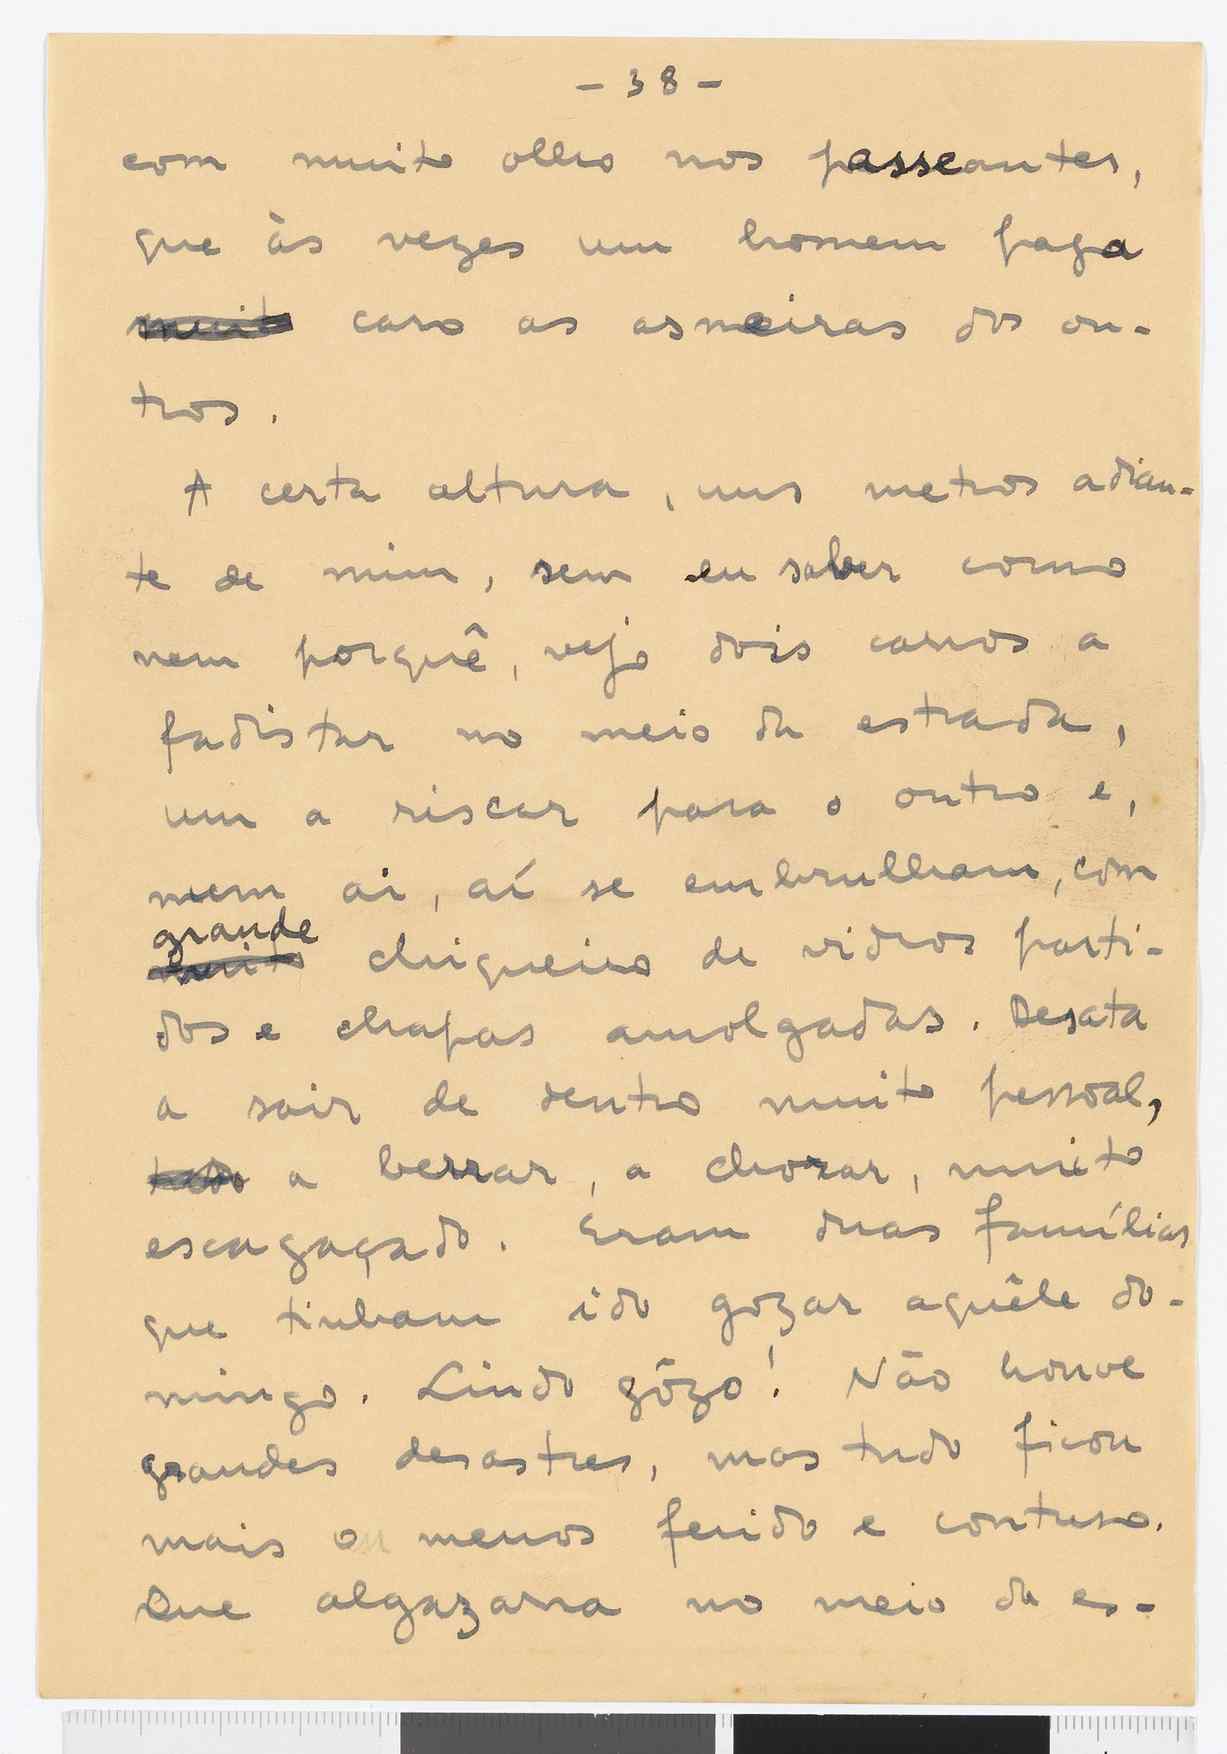 - 38 -
com muito olho nos passeantes,
que às vezes um homem paga
muito caro as asneiras dos ou-
tros.
A certa altura, uns metros adian-
te de mim, sem eu saber como
nem porquê, vejo dois carros a
fadistar no meio da estrada,
um a riscar para o outro e,
nem ai, aí se embrulham, com
grande
muito chiqueiro de vidros parti-
dos e chapas amolgadas. Desata
a sair de dentro muito pessoal,
todo a berrar, a chorar, muito
escagaçado. Eram duas famílias
que tinham ido gozar aquêle do-
mingo. Lindo gôzo! Não houve
grandes desastres, mas tudo ficou
mais ou menos ferido e contuso.
Que algazarra no meio da es-